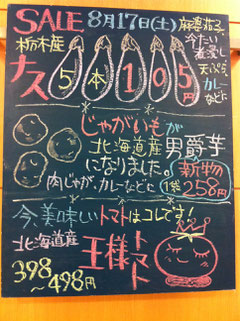 SALE 8月17日(土)
栃木産
ナス 5本105円
麻婆茄子
冷たい
煮浸し
天ぷら
カレー
などに
じゃがいもが
北海道産男爵芋
になりました。
新物
肉じゃが、カレーなどに
1袋 258円
今、美味しいトマトはコレです!
北海道産
王様トマト
398〜498円